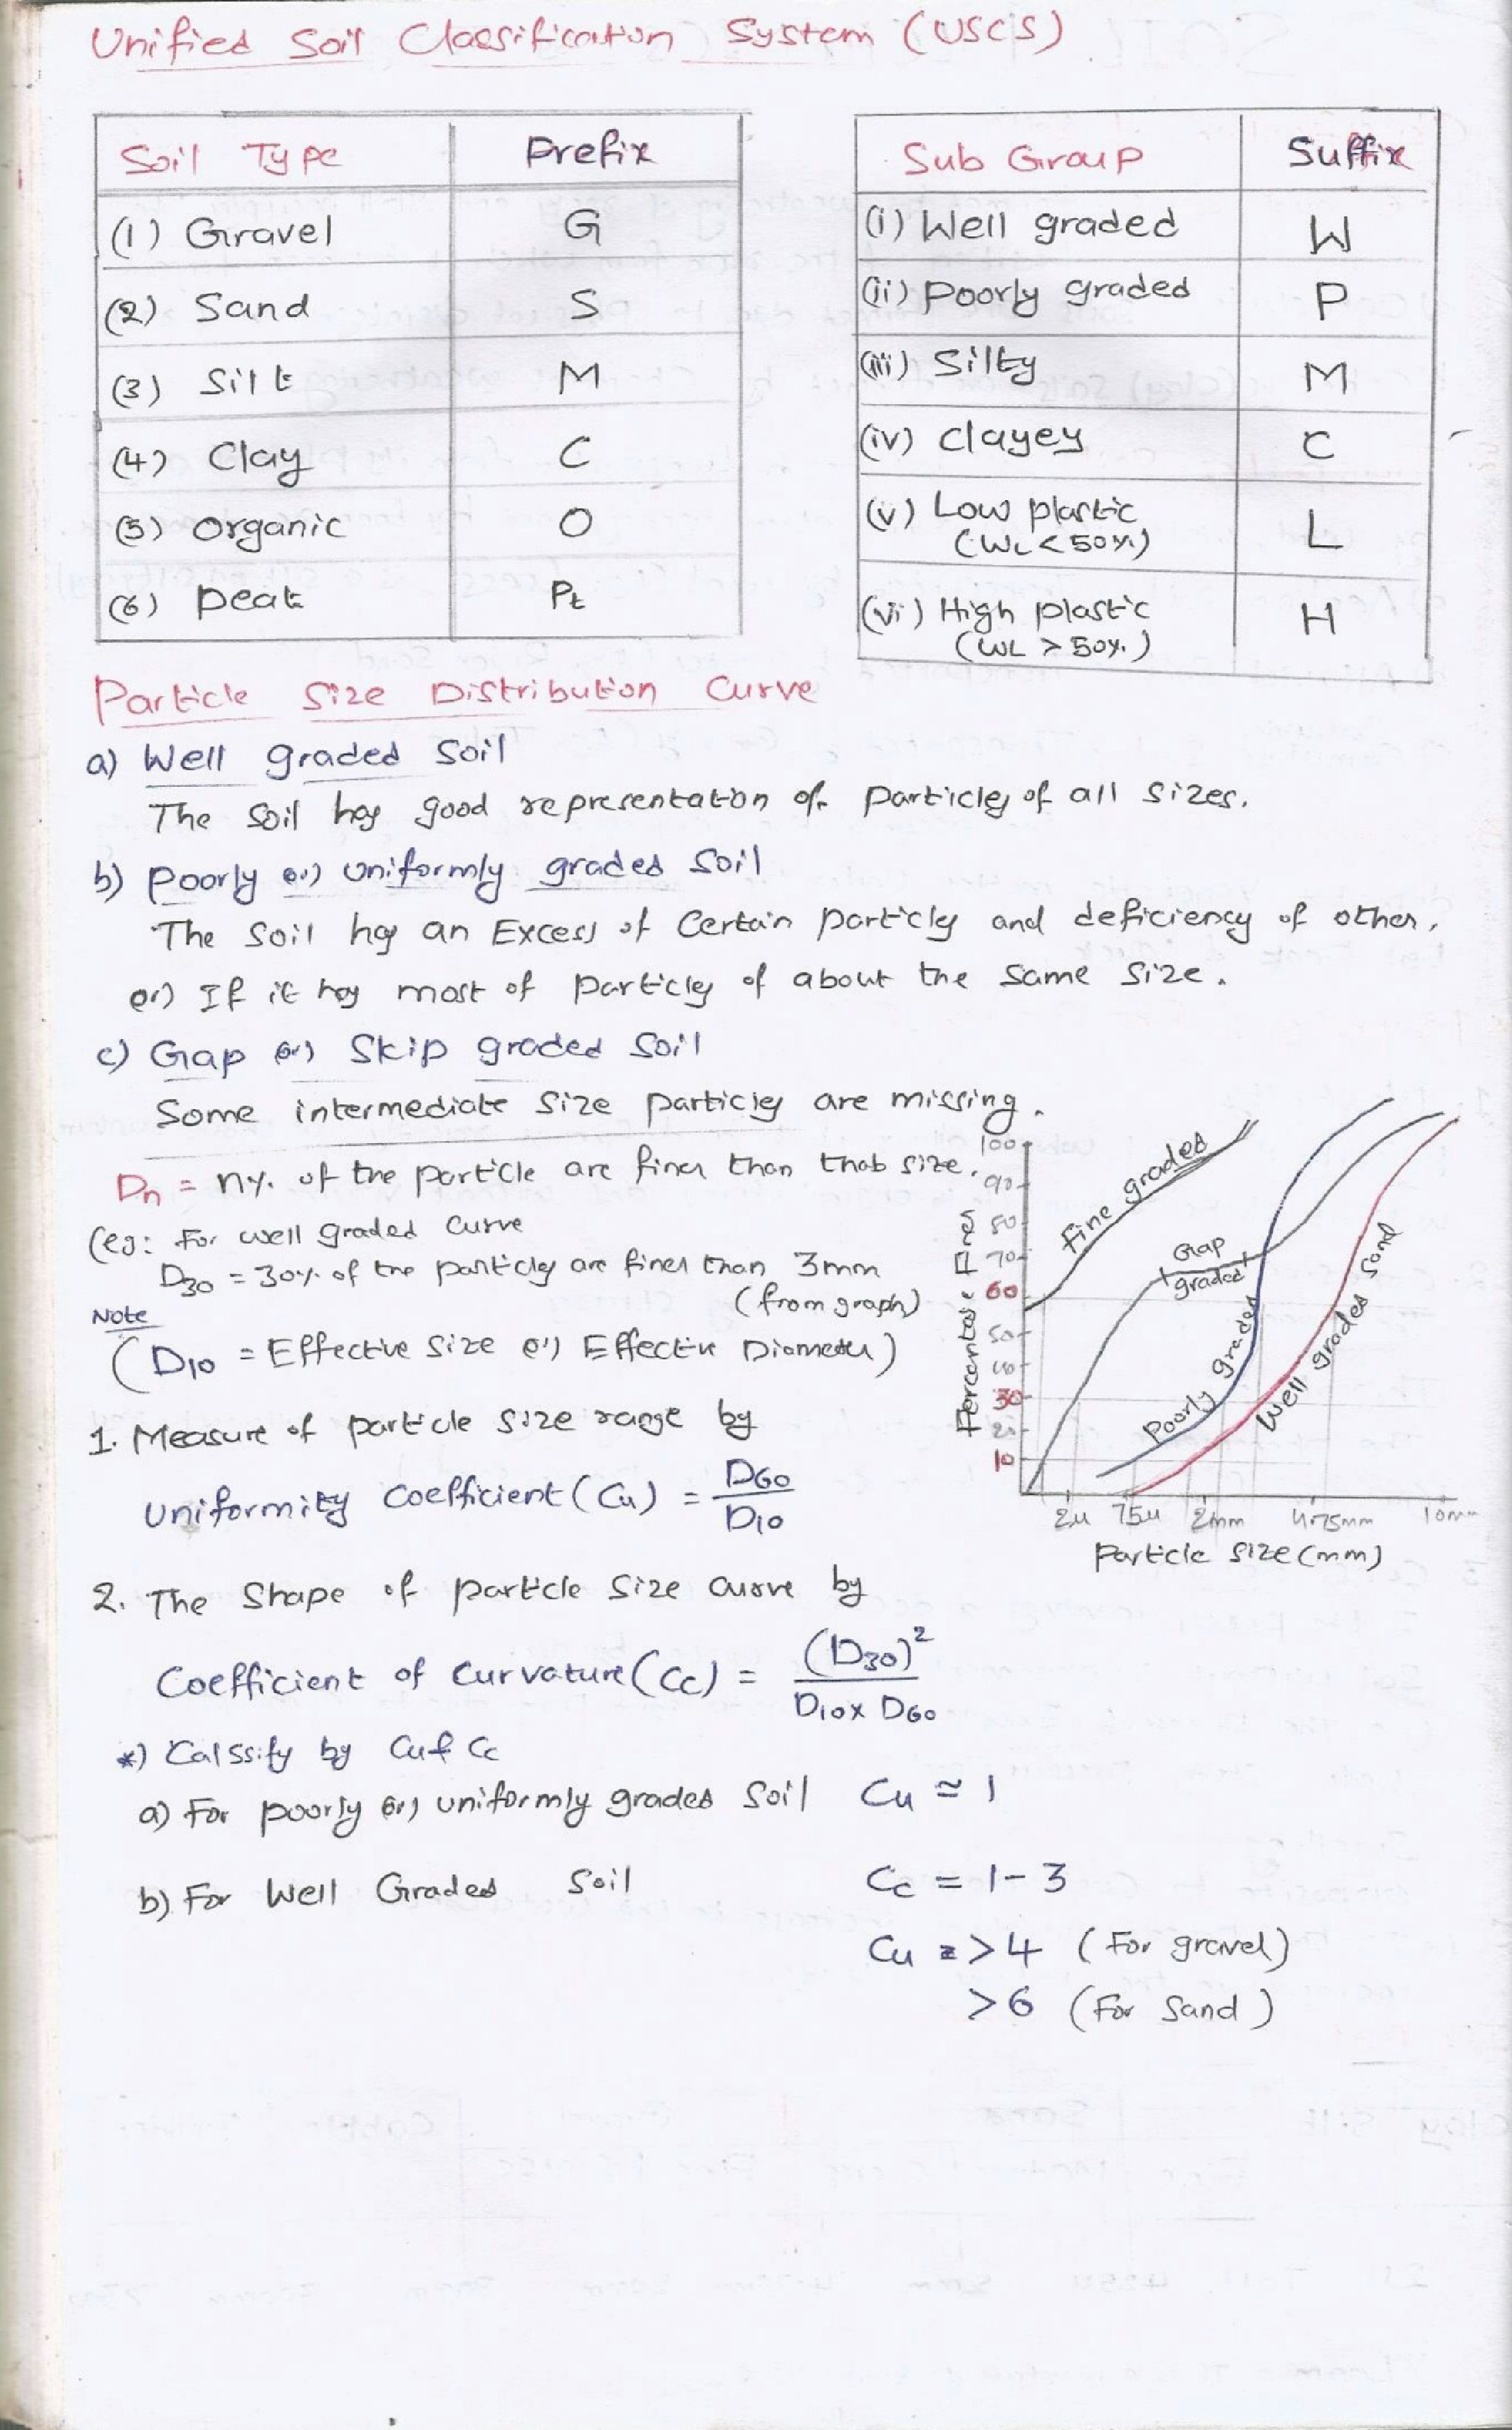 Unified Soil Classification System (USCS)
Soil Type Prefix
(1) Gravel G
(2) Sand S
(3) Silt M
(4) Clay C
(5) Organic O
(6) Peat Pt
Sub Group Suffix
(i) Well graded W
(ii) Poorly graded P
(iii) Silty M
(iv) Clayey C
(v) Low plastic L
(WL < 50%)
(vi) High plastic H
(WL > 50%)
Particle Size Distribution Curve
a) Well graded Soil
The Soil has good representation of particles of all sizes.
b) Poorly (or) Uniformly graded Soil
The Soil has an Excess of Certain particles and deficiency of other.
(or) If it has most of particles of about the same size.
c) Gap (or) Skip graded Soil
Some intermediate size particles are missing.
Dn = n% of the particle are finer than that size.
(eg: For well graded curve
D30 = 30% of the particles are finer than 3mm
(from graph)
Note
(D10 = Effective size (or) Effective Diameter)
1. Measure of particle size range by
Uniformity Coefficient (Cu) = D60 / D10
2. The Shape of particle size curve by
Coefficient of Curvature (Cc) = (D30)² / D10 x D60
*) Calssify by Cu & Cc
a) For poorly (or) uniformly graded Soil Cu ≈ 1
b) For Well Graded Soil Cc = 1-3
Cu = > 4 (For gravel)
> 6 (For Sand)
Percentage Finer
100
90
80
70
60
50
40
30
20
10
Fine graded
Gap graded
Poorly graded
Well graded Sand
2μ 75μ 2mm 4.75mm 10mm
Particle size (mm)